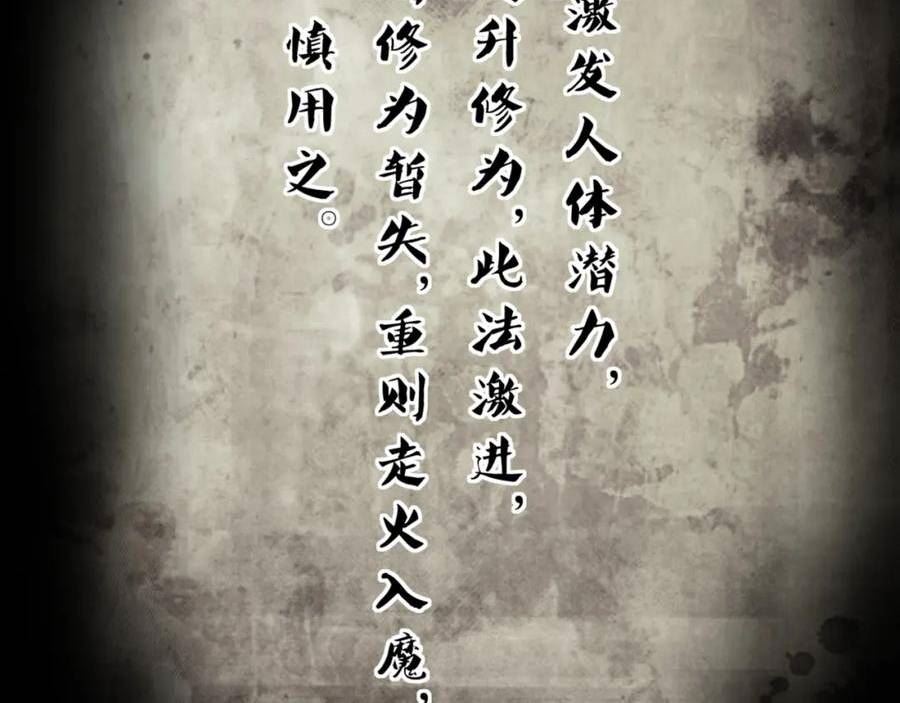 激发人体潜力，
升修为，此法激进，
修为暂失，重则走火入魔，
慎用之。